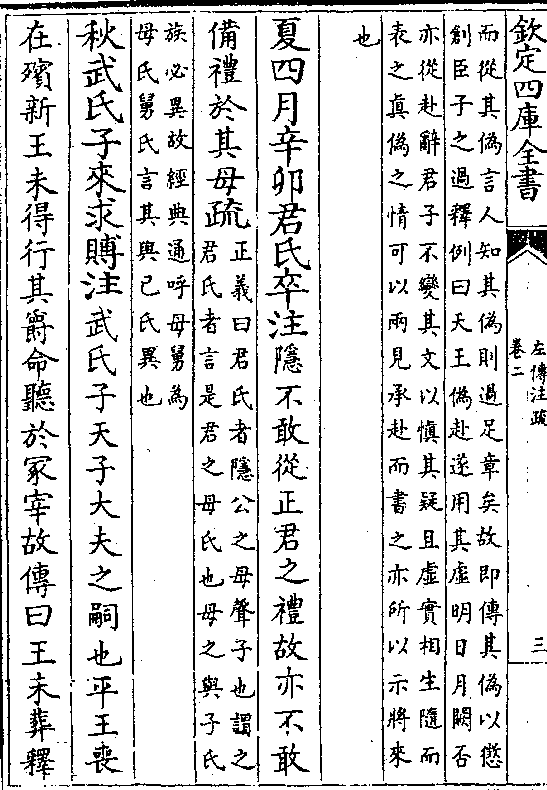 欽定四庫全書
左傳注疏
卷二
三
而從其偽言人知其偽則過足章矣故即傳其偽以懲
創臣子之過釋例曰天王偽赴遂用其虛明日月闕否
亦從赴辭君子不變其文以慎其疑且虛實相生隨而
表之真偽之情可以兩見承赴而書之亦所以示將來
也
夏四月辛卯君氏卒注隱不敢從正君之禮故亦不敢
備禮於其母疏
正義曰君氏者隱公之母聲子也謂之
君氏者言是君之母氏也母之與子氏
族必異故經典通呼母舅為
母氏舅氏言其與己氏異也
秋武氏子來求賻注武氏子天子大夫之嗣也平王喪
在殯新王未得行其爵命聽於冢宰故傳曰王未葬釋